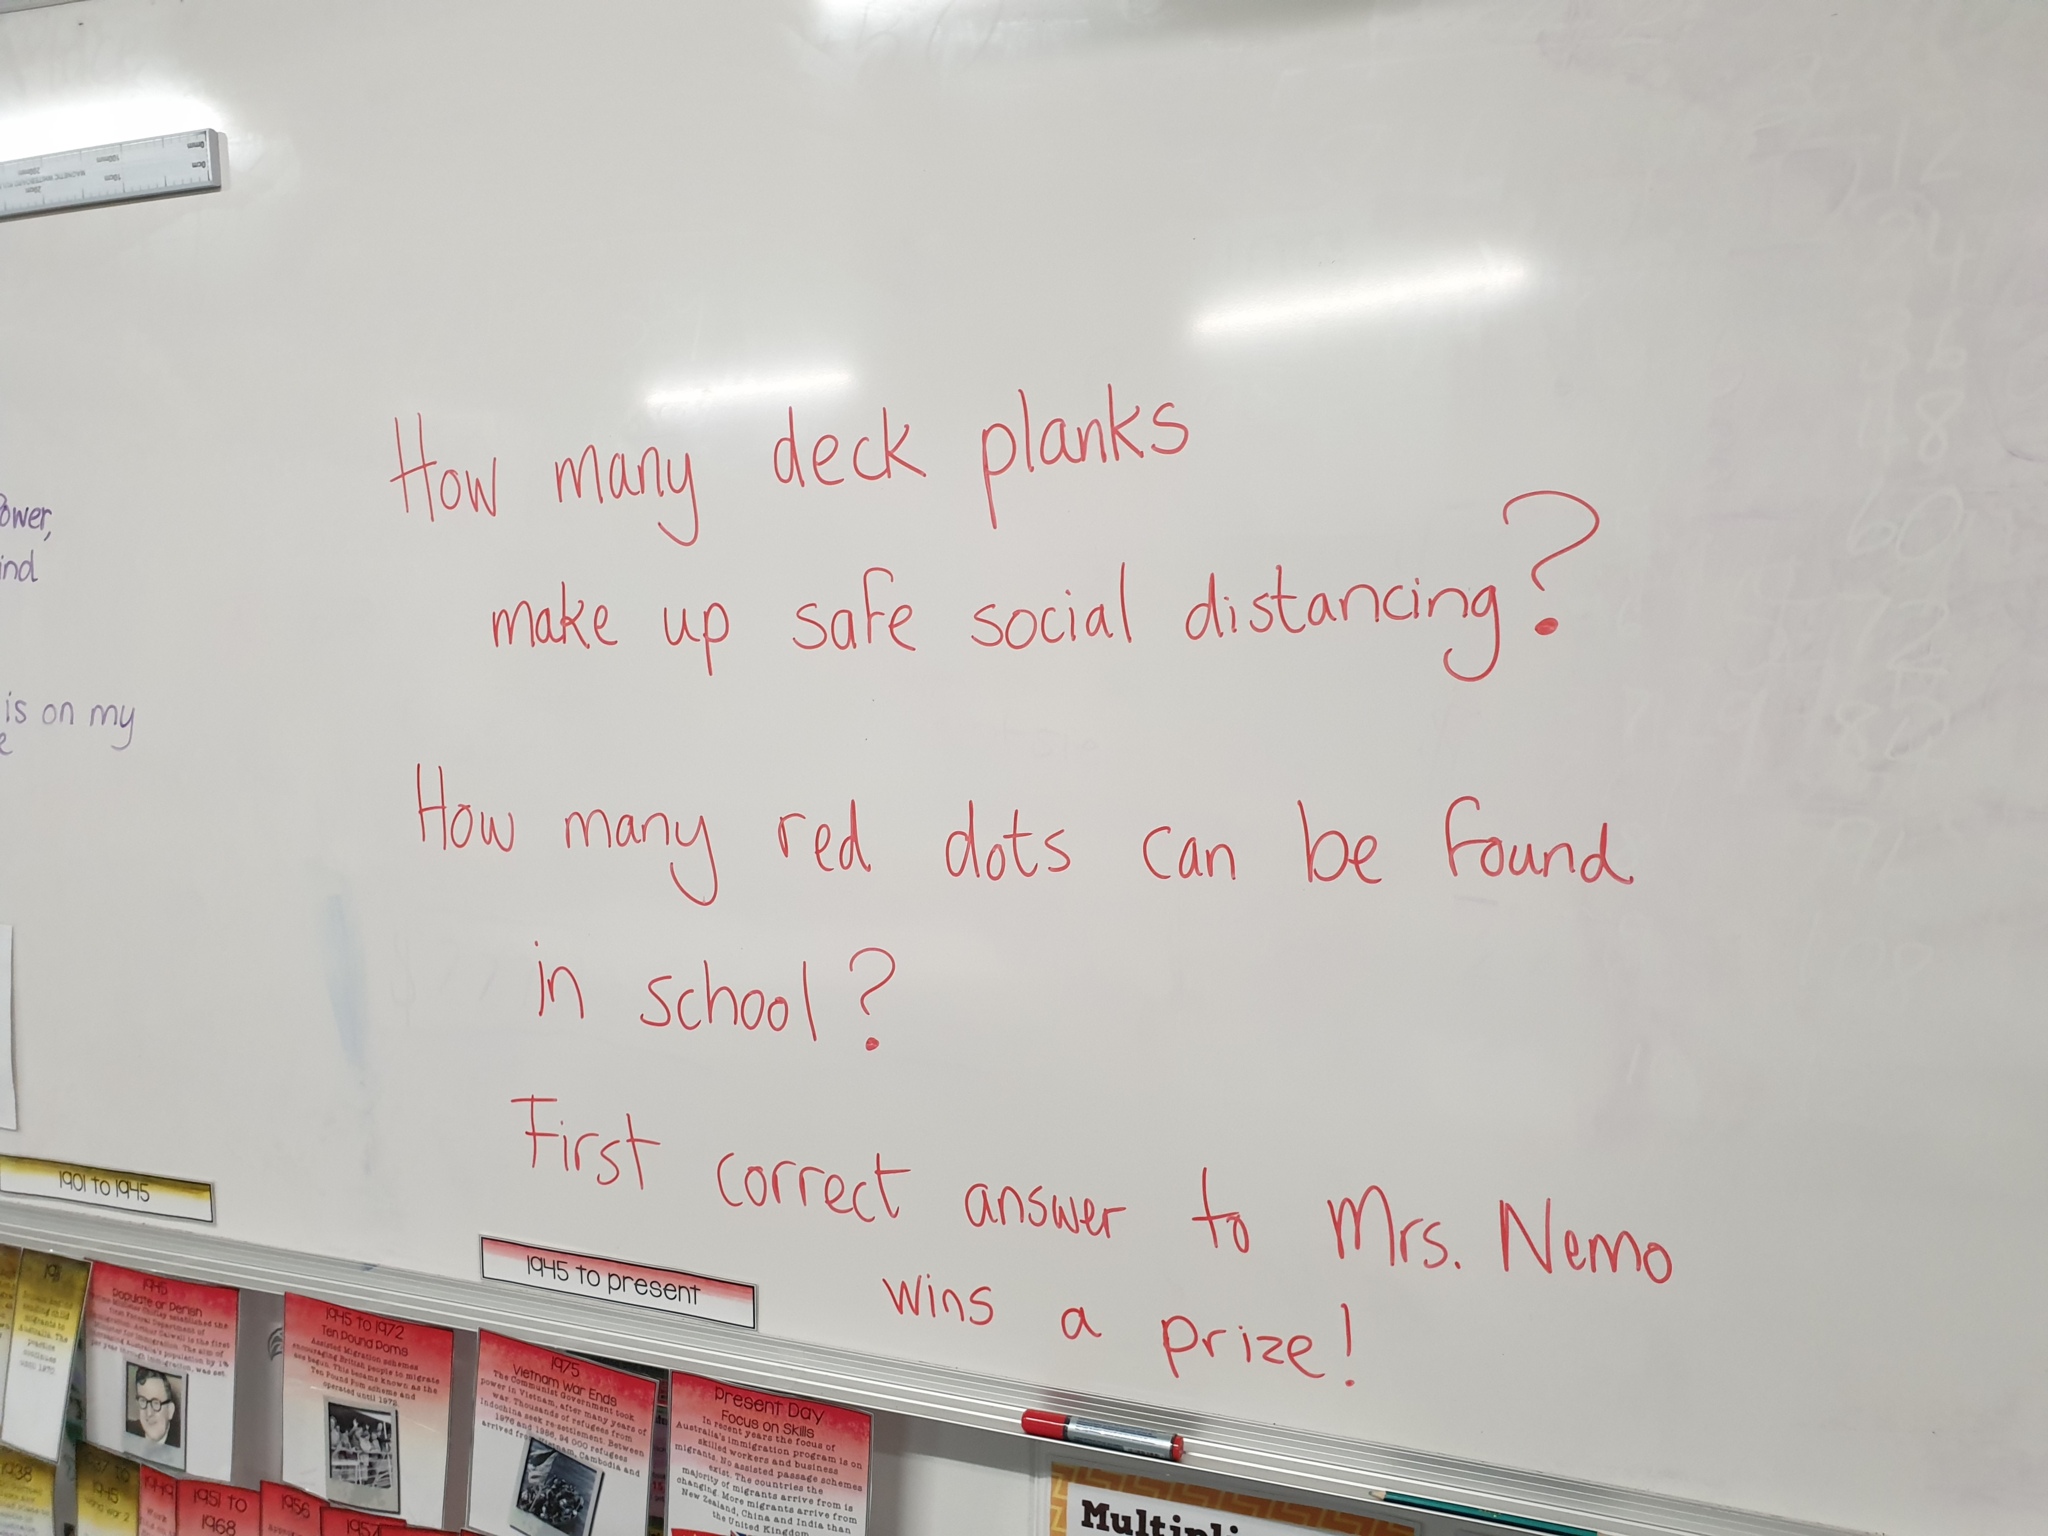 How many deck planks
make up safe social distancing?
How many red dots can be found
in school?
First correct answer to Mrs. Nemo
wins a prize!
ower,
ind
is on my
1901 to 1945
1945 to present
1945
Populate or Perish
1945 to 1972
Ten Pound Poms
Assisted Migration schemes
encouraging British people to migrate
are begun. This became known as the
Ten Pound Pom scheme and
operated until 1972.
1975
Vietnam War Ends
The Communist Government took
power in Vietnam, after many years of
war. Thousands of refugees from
Indochina seek re-settlement. Between
1976 and 1986, 94 000 refugees
arrived from Vietnam, Cambodia and
Present Day
Focus on Skills
In recent years the focus of
Australia's immigration program is on
skilled workers and business
migrants. No assisted passage schemes
exist. The countries the
majority of migrants arrive from is
changing. More migrants arrive from
New Zealand, China and India than
the United Kingdom
1938
1945
1949
1951 to
1968
1956
1957
Multipli